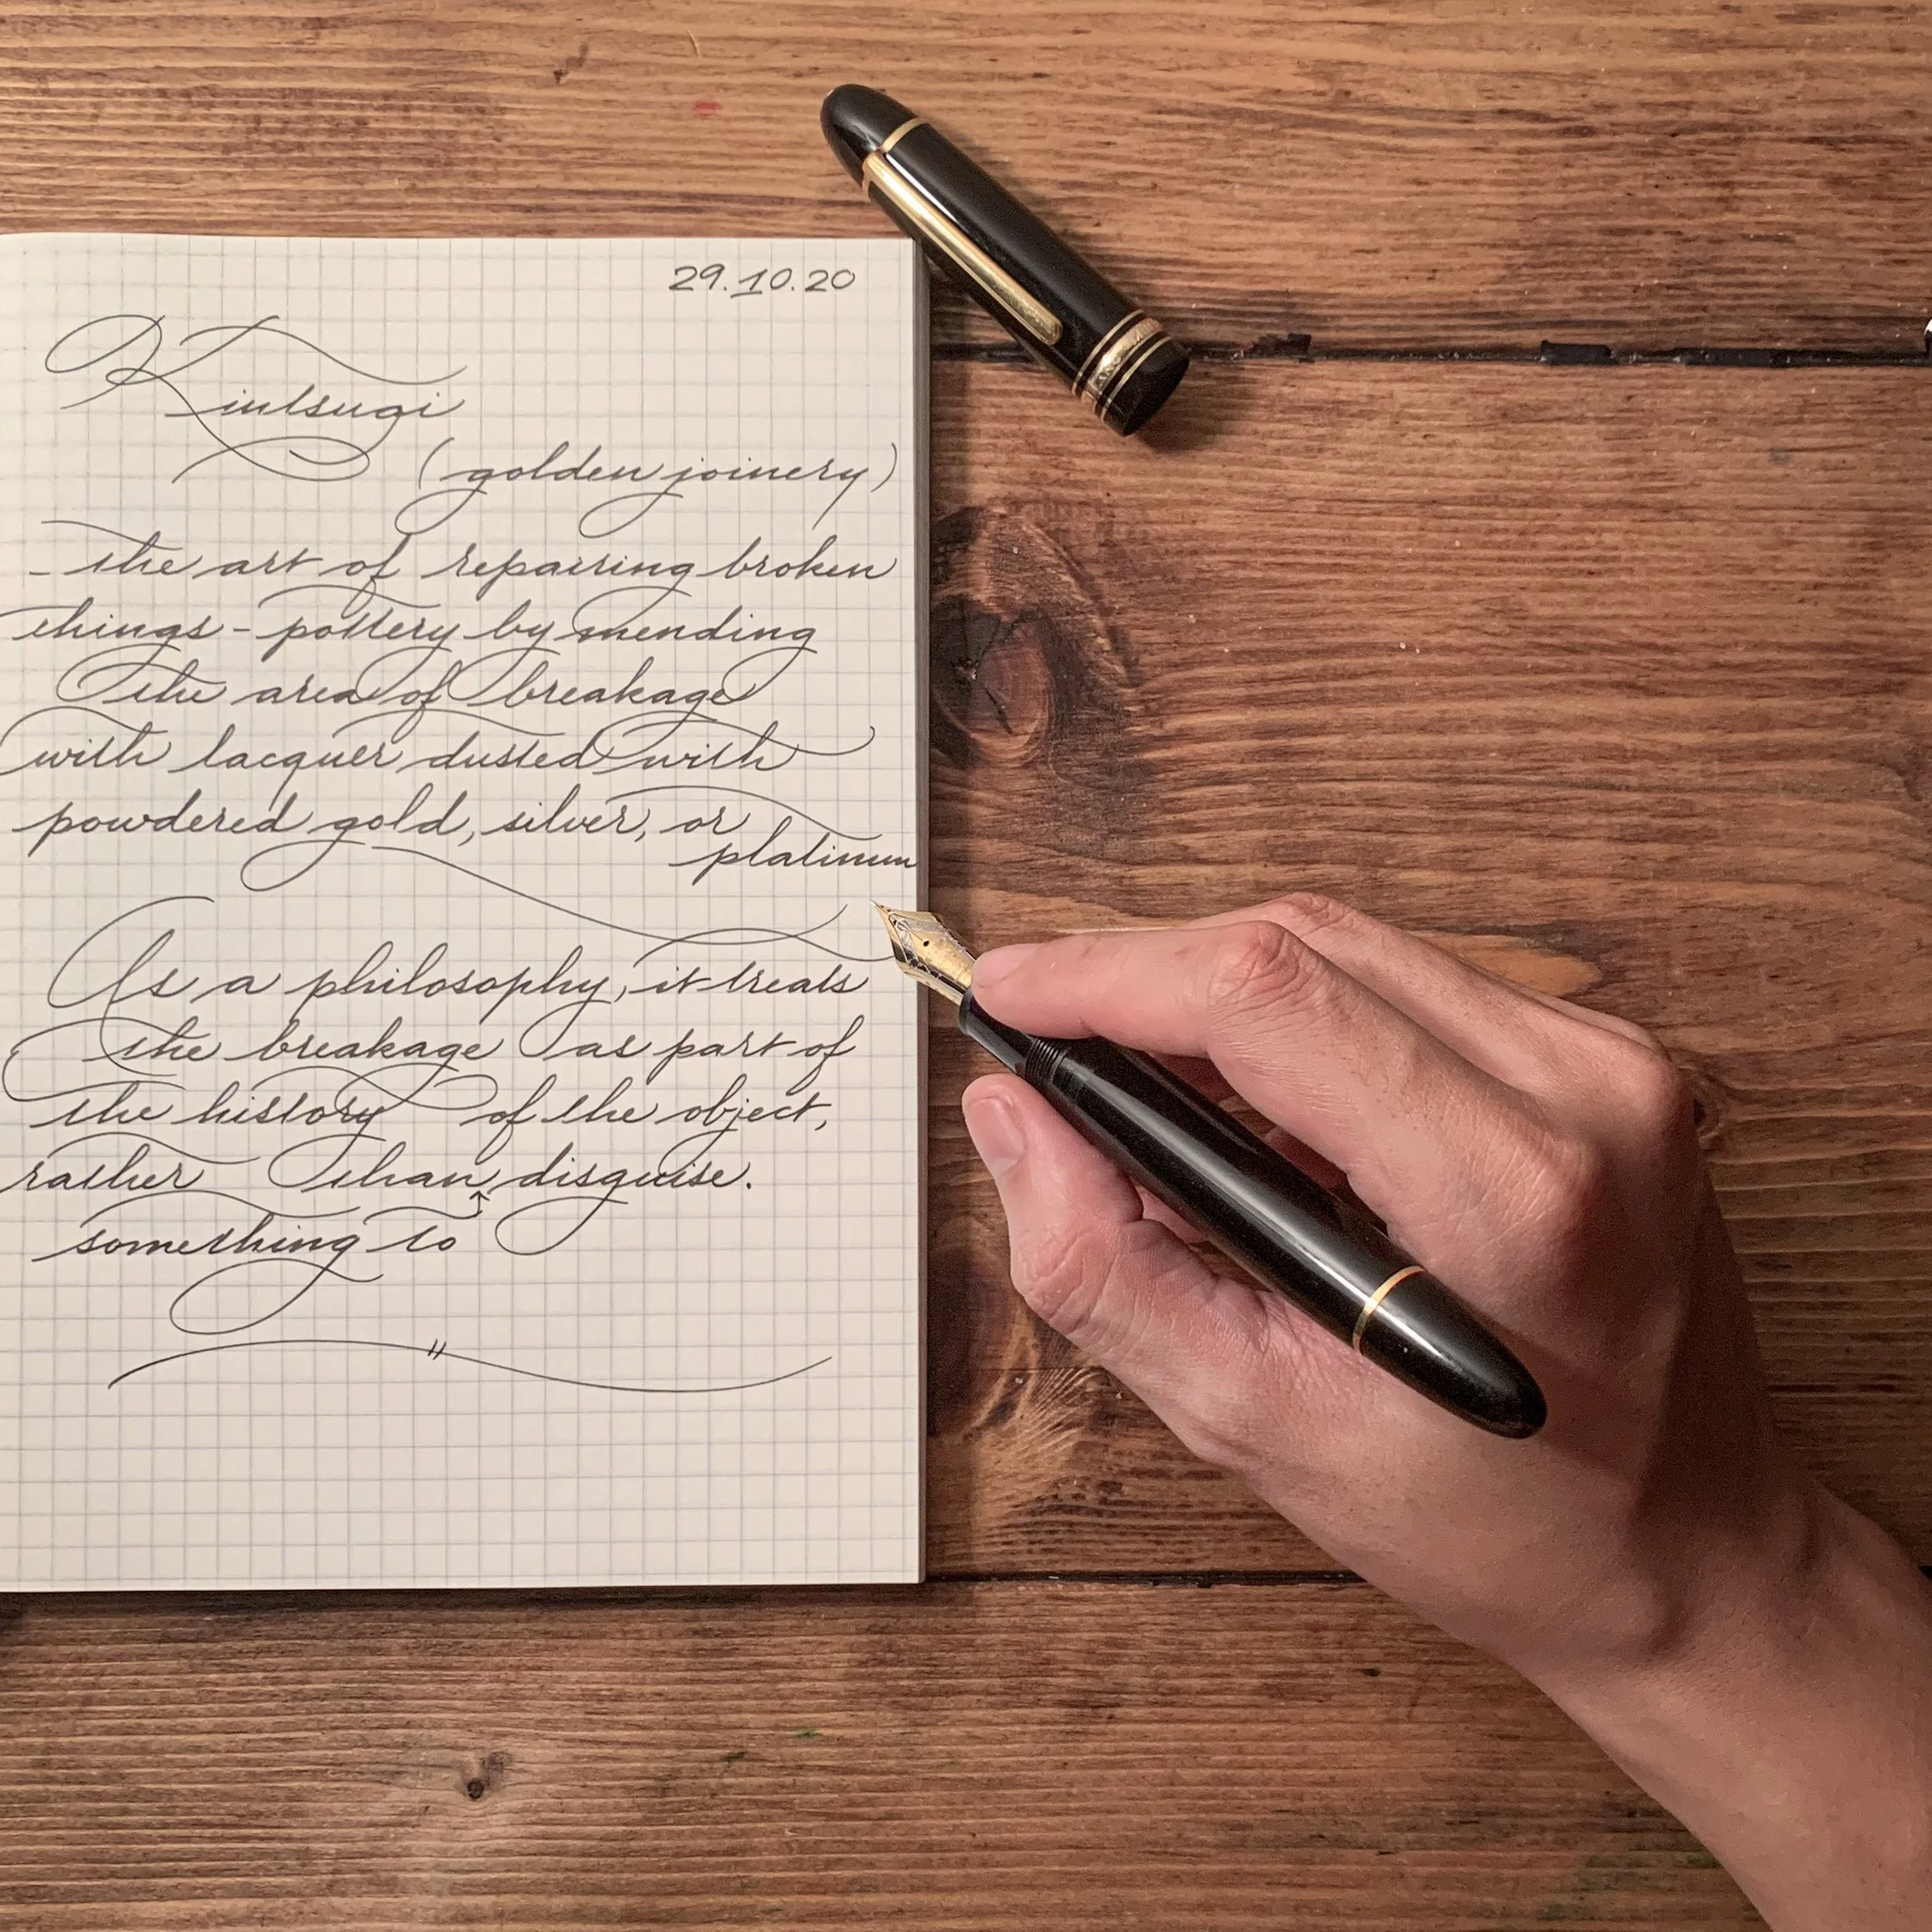 29.10.20
Kintsugi
(golden joinery)
- the art of repairing broken
things - pottery by mending
the area of breakage
with lacquer dusted with
powdered gold, silver, or
platinum
As a philosophy, it treats
the breakage as part of
the history of the object,
rather than disguise.
something to